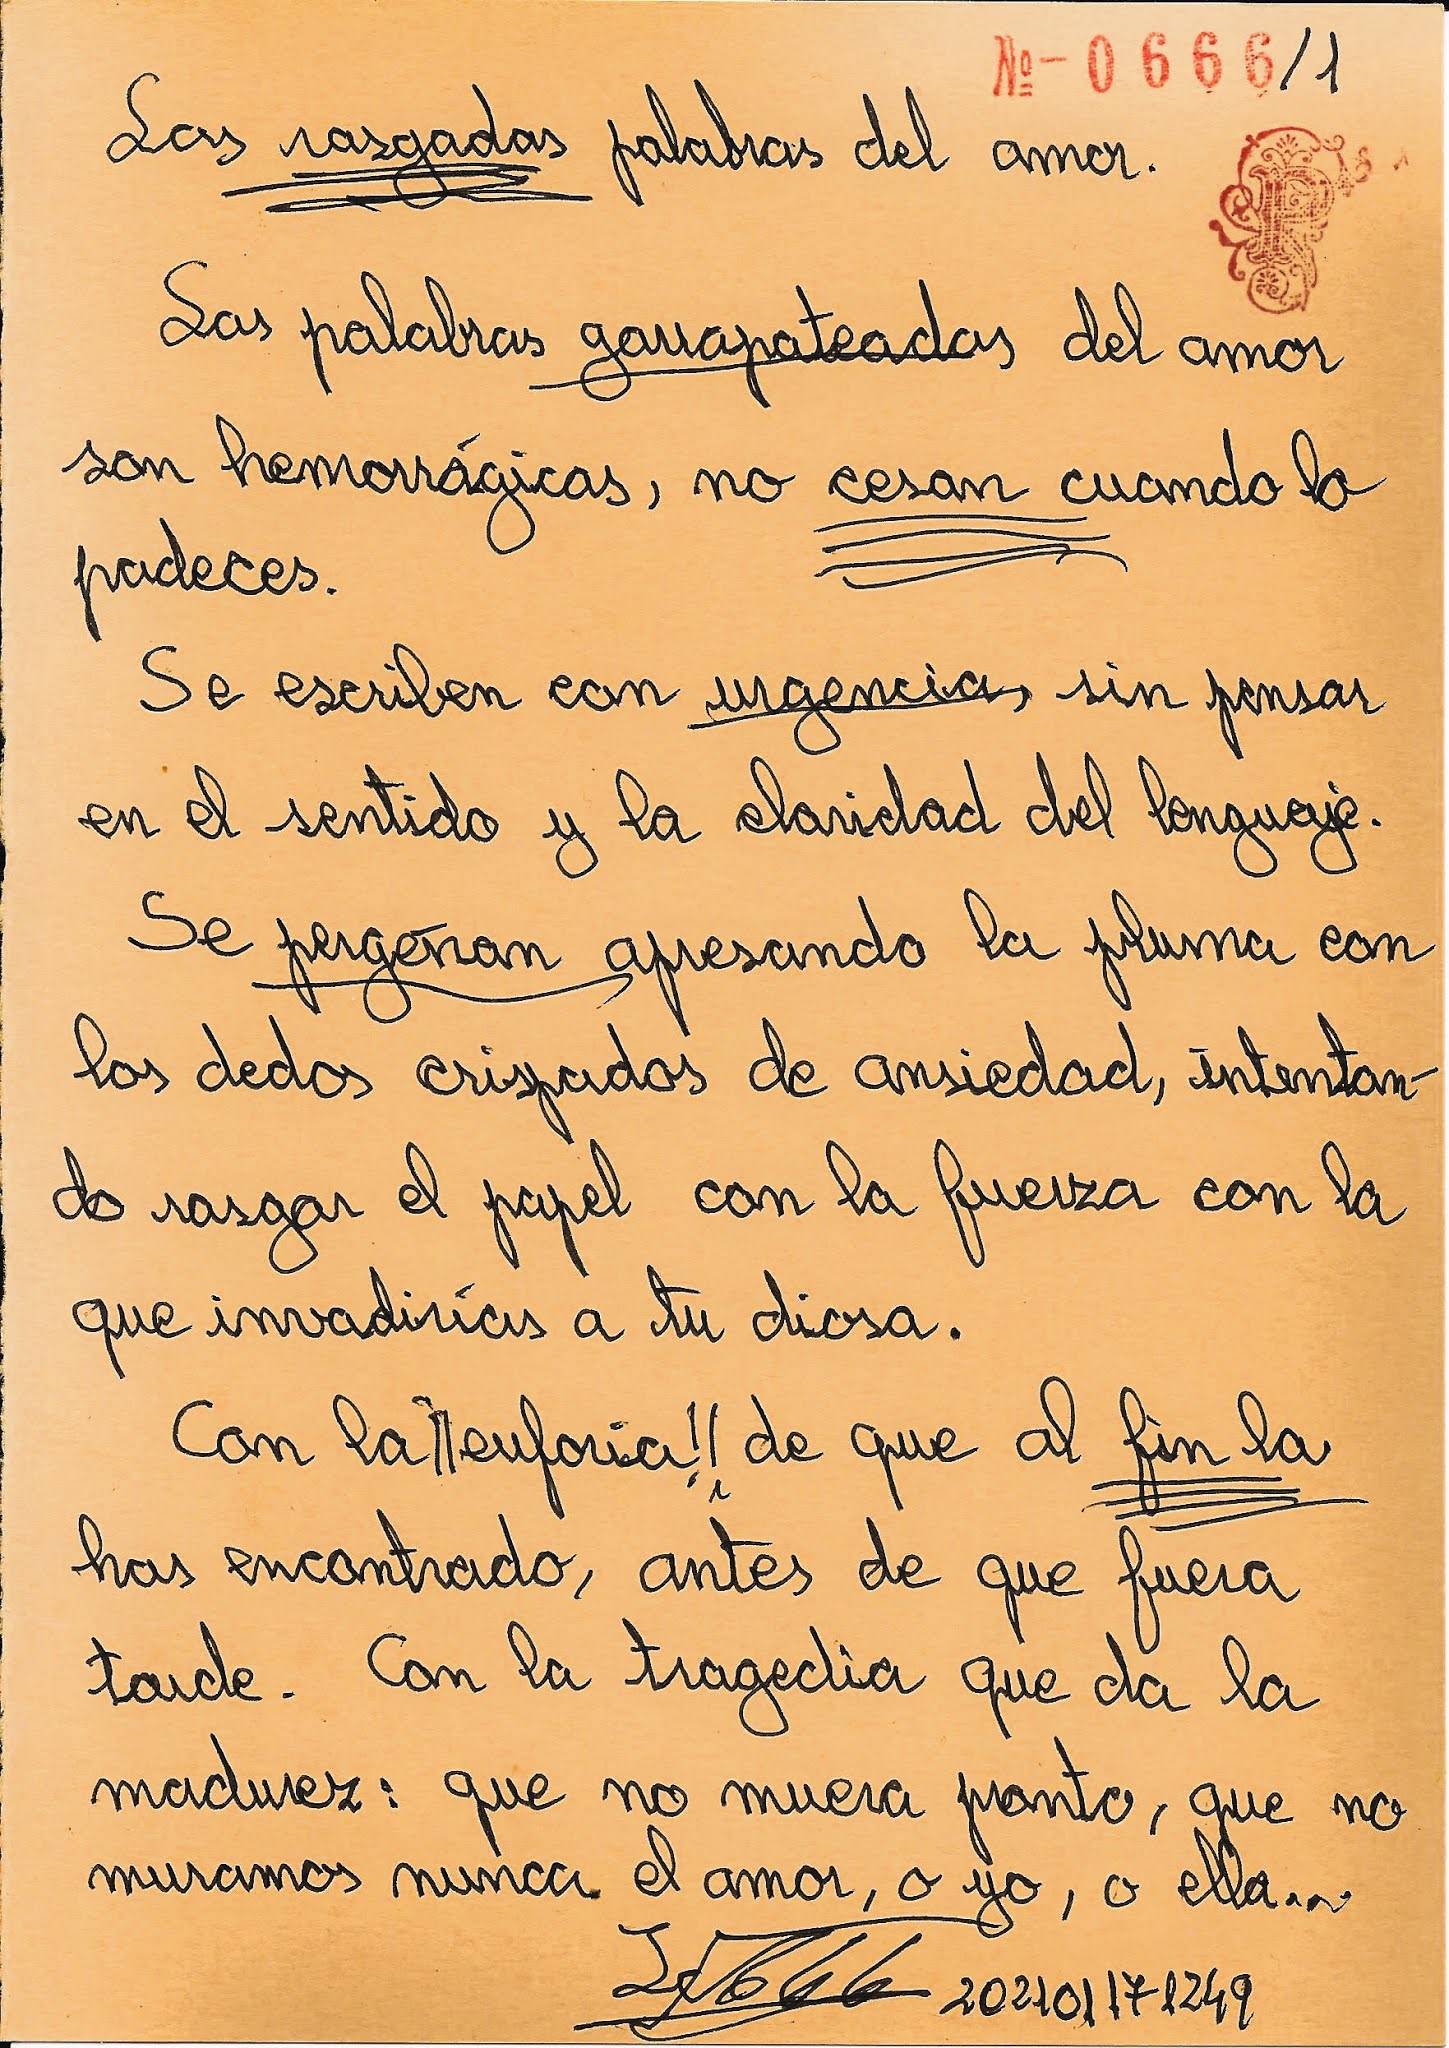 Nº-0666/1
Las rasgadas palabras del amor.
Las palabras garrapateadas del amor
son hemorrágicas, no cesan cuando lo
padeces.
Se escriben con urgencia, sin pensar
en el sentido y la claridad del lenguaje.
Se pergeñan apresando la pluma con
los dedos crispados de ansiedad, intentan-
do rasgar el papel con la fuerza con la
que invadirías a tu diosa.
Con la ¡¡euforia!! de que al fin la
has encontrado, antes de que fuera
tarde. Con la tragedia que da la
madurez: que no muera pronto, que no
muramos nunca el amor, o yo, o ella...
202101171249